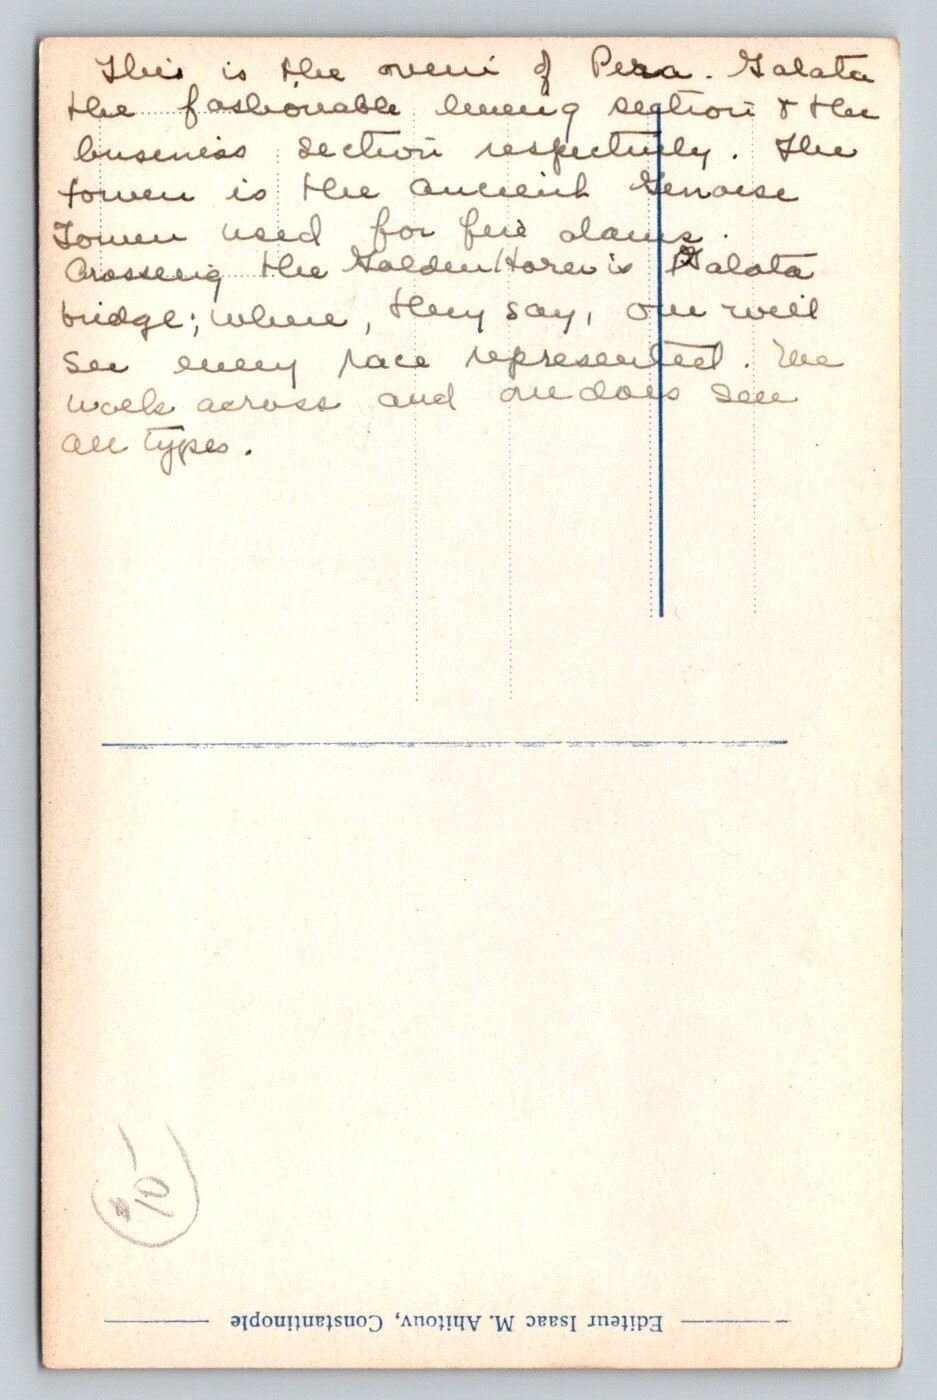 This is the of Pera. Galata
the fashionable living section & the
business section respectively. The
tower is the ancient Genoese
Tower used for fire alarms.
Crossing the Golden Horn is Galata
bridge; where, they say, one will
see every race represented. We
walk across and one does see
all types.
Editeur Isaac M. Ahitouv, Constantinople